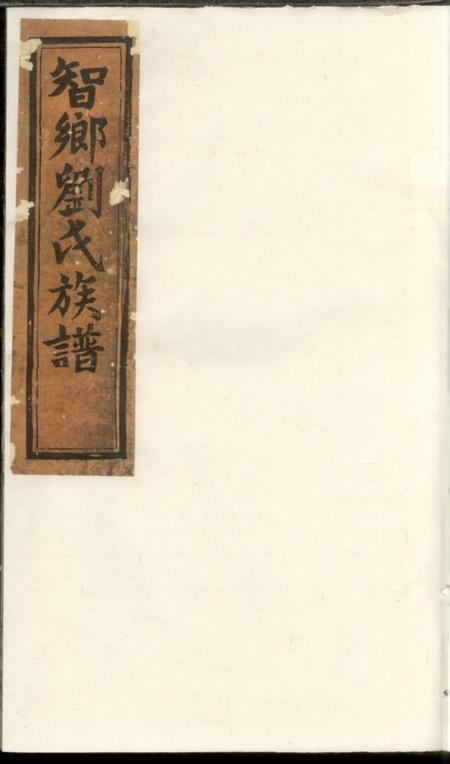 智鄉劉氏族譜